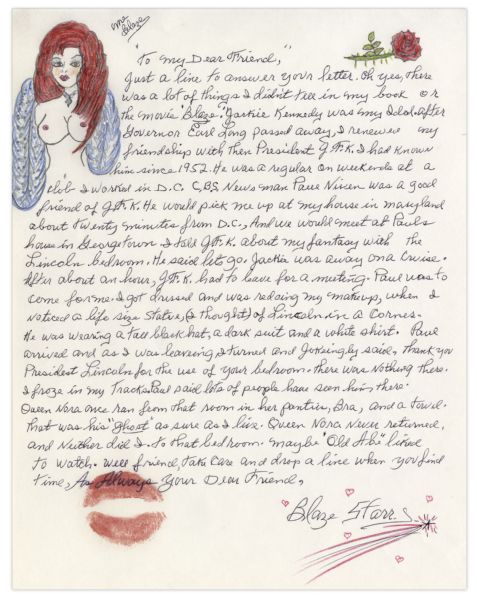 me
Blaze
"To my Dear Friend,"
Just a line to answer your letter. Oh yes, there
was a lot of things I didn't tell in my book or
the movie "Blaze". Jackie Kennedy was my Idol. After
Governor Earl Long passed away, I renewed my
friendship with then President J.F.K. I had known
him since 1952. He was a regular on weekends at a
club I worked in D.C. CBS News man Paul Niven was a good
friend of J.F.K. He would pick me up at my house in maryland
about Twenty minutes from D.C., And we would meet at Pauls
house in Georgetown. I told J.F.K. about my fantasy with the
Lincoln bedroom. He said lets go. Jackie was away on a Cruise.
After about an hour, J.F.K. had to leave for a meeting. Paul was to
come for me. I got dressed and was redoing my makeup, when I
noticed a life size Statue, (I thought) of Lincoln in a Corner.
He was wearing a tall black hat, a dark suit and a white shirt. Paul
arrived and as I was leaving I turned and Jokingly said, Thank you
President Lincoln for the use of your bedroom. there was Nothing there.
I froze in my Tracks. Paul said lots of people have seen him there.
Queen Nora once ran from that room in her panties, Bra, and a Towel.
That was his "Ghost" as sure as I live. Queen Nora Never returned,
and Neither did I. To that bedroom. maybe "Old Abe" liked
to watch. Well friend, Take Care and drop a line when you find
time, As Always Your Dear Friend,
Blaze Starr